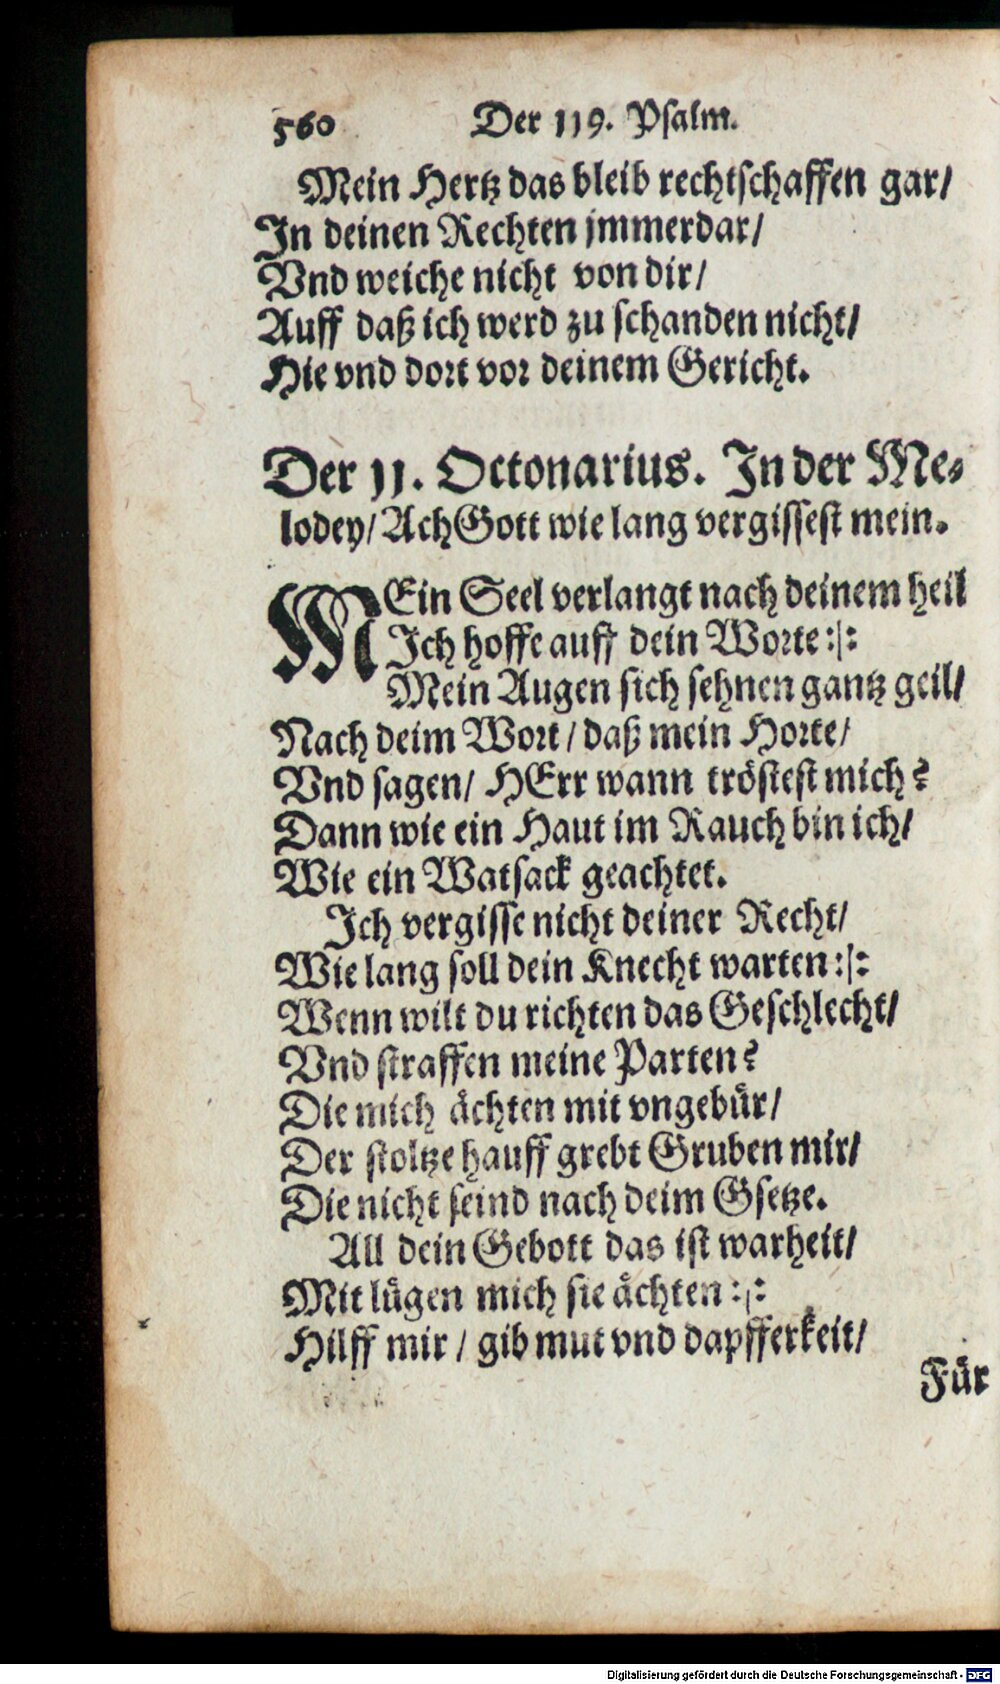 560 Der 119. Psalm.
Mein Hertz das bleib rechtschaffen gar/
In deinen Rechten jmmerdar/
Vnd weiche nicht von dir/
Auff daß ich werd zu schanden nicht/
Hie vnd dort vor deinem Gericht.
Der 11. Octonarius. In der Me-
lodey/ Ach Gott wie lang vergissest mein.
MEin Seel verlangt nach deinem heil
Ich hoffe auff dein Worte :|:
Mein Augen sich sehnen gantz geil/
Nach deim Wort / daß mein Horte/
Vnd sagen/ HErr wann tröstest mich?
Dann wie ein Haut im Rauch bin ich/
Wie ein Watsack geachtet.
Ich vergisse nicht deiner Recht/
Wie lang soll dein Knecht warten :|:
Wenn wilt du richten das Geschlecht/
Vnd straffen meine Parten?
Die mich ächten mit vngebür/
Der stoltze hauff grebt Gruben mir/
Die nicht seind nach deim Gsetze.
All dein Gebott das ist warheit/
Mit lügen mich sie ächten :|:
Hilff mir / gib mut vnd dapfferkeit/
Für
Digitalisierung gefördert durch die Deutsche Forschungsgemeinschaft - DFG